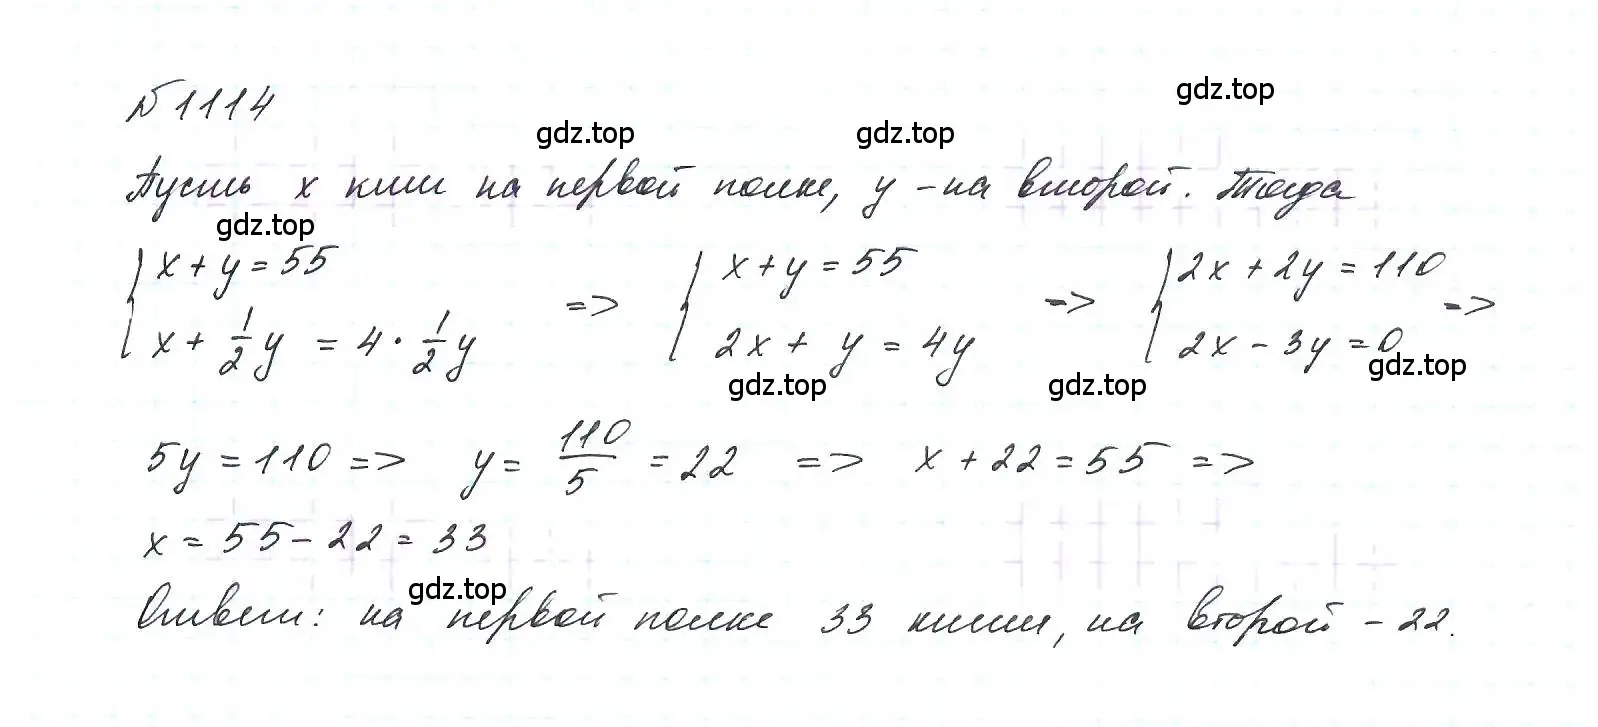 №1114
gdz.top
gdz.top gdz.top
Пусть x книг на первой полке, y – на второй. Тогда
gdz.top
{ x + y = 55 => { x + y = 55 => { 2x + 2y = 110 =>
{ x + 1/2 y = 4 · 1/2 y { 2x + y = 4y { 2x - 3y = 0
gdz.top gdz.top gdz.top
5y = 110 => y = 110/5 = 22 => x + 22 = 55 =>
x = 55 - 22 = 33
gdz.top
Ответ: на первой полке 33 книги, на второй – 22.